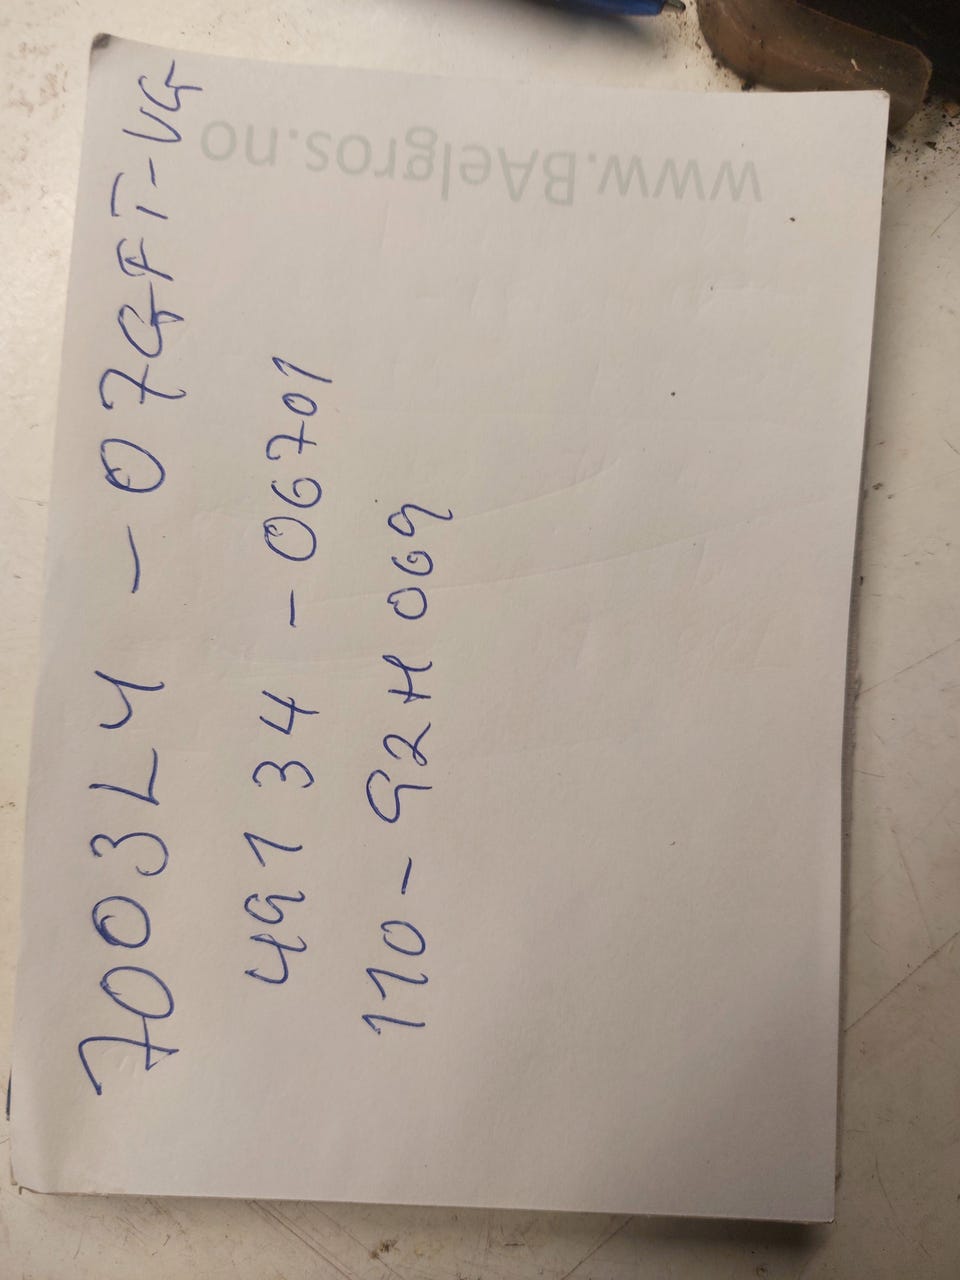 7003L4 - 07GFT-VG
49134 - 06701
110 - 92H069
www.BAelgros.no